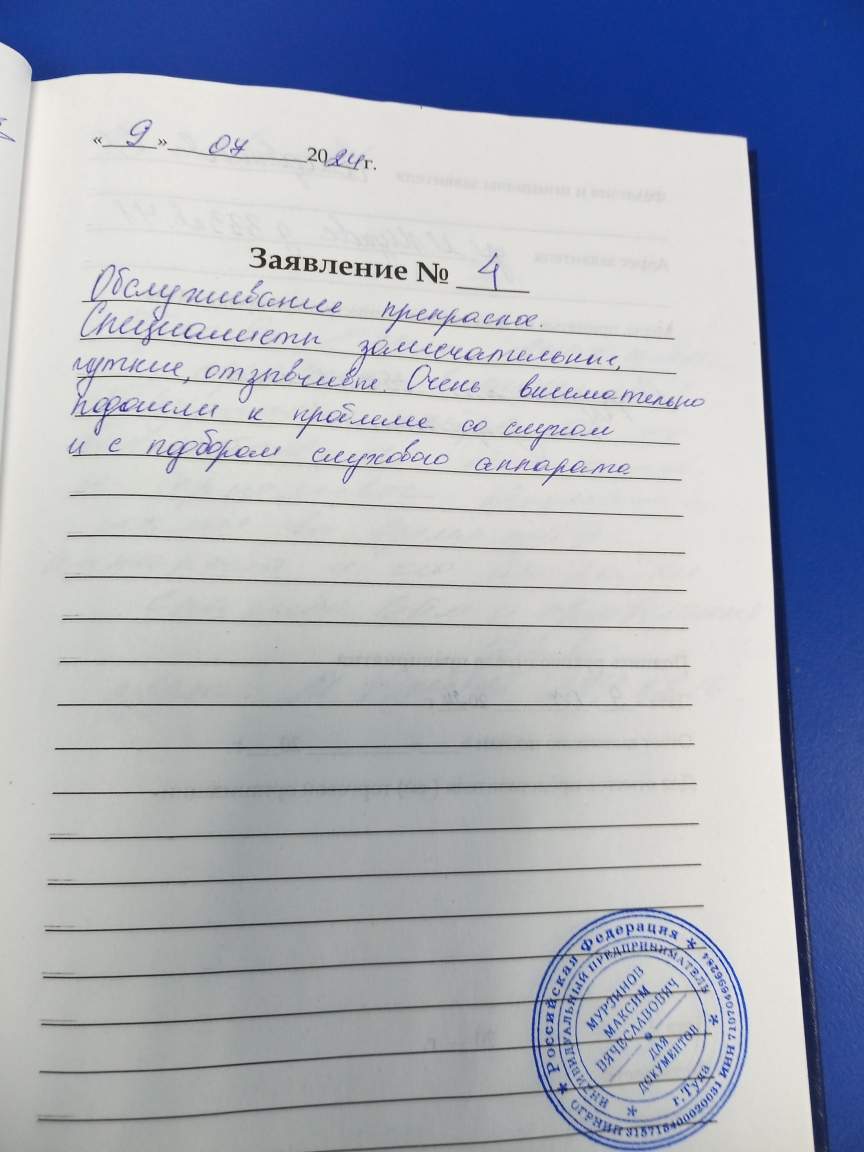 «9» 07 2024 г.
Заявление № 4
Обслуживание прекрасное.
Специалисты замечательные,
чуткие, отзывчивые. Очень внимательно
подошли к проблеме со слухом
и с подбором слухового аппарата.
* Российская Федерация *
ИНДИВИДУАЛЬНЫЙ ПРЕДПРИНИМАТЕЛЬ
МУРЗИНОВ
МАКСИМ
ВЯЧЕСЛАВОВИЧ
ДЛЯ
ДОКУМЕНТОВ
г.Тула
ОГРНИП 315715400020031 ИНН 710704696284